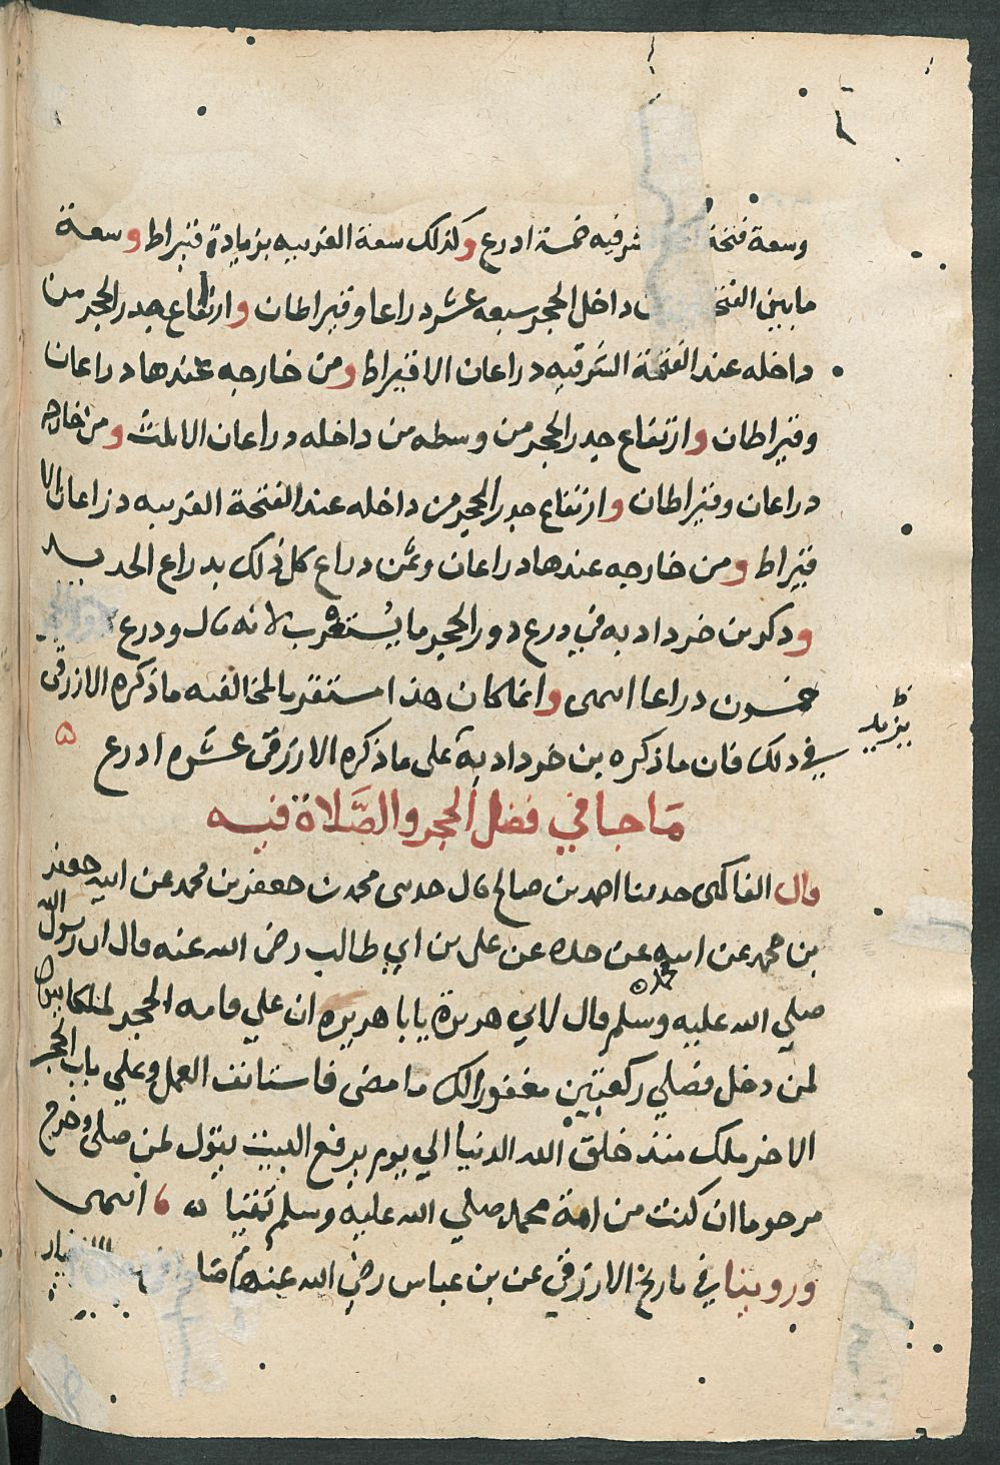 وسعة فتحة شرفيه خمسة ادرع وكذلك سعة الغربيه بزيادة قيراط وسعة
ما بين الفتحتين من داخل الحجر سبعه عشر دراعا وقيراطان وارتفاع جدر الحجر من
داخله عند الفتحة الشرقيه دراعان الا قيراط ومن خارجه عندها دراعان
وقيراطان وارتفاع جدر الحجر من وسطه من داخله دراعان الا ثلث ومن خارجه
دراعان وقيراطان وارتفاع جدر الحجر من داخله عند الفتحة الغربيه دراعان الا
قيراط ومن خارجه عندها دراعان وثمن دراع كل ذلك بدراع الحديد
ودكر بن خرداد به في درع دور الحجر ما يستغرب لانه قال ودرع
خمسون دراعا انتهى وانما كان هذا مستغربا لمخالفته ما ذكره الازرقي
في دلك فان ما ذكره بن خرداد به على ما ذكره الازرقي عشره ادرع ٥
يزيد
ما جا في فضل الحجر والصلاة فيه
قال الفاكهي حدثنا احمد بن صالح قال حدثني محمد بن جعفر بن محمد عن ابيه جعفر
بن محمد عن ابيه عن جده عن علي بن ابي طالب رضي الله عنه قال ان رسول الله
صلي الله عليه وسلم قال لابي هريرة يا با هريره ان علي قامه الحجر لملكا يقول
لمن دخل فصلي ركعتين مغفورا لك ما مضى فاستانف العمل وعلي باب الحجر
الاخر ملك منذ خلق الله الدنيا الي يوم يرفع البيت يقول لمن صلى وخرج
مرحوما ان كنت من امة محمد صلي الله عليه وسلم تقيا انتهى
وروينا في تاريخ الازرقي عن بن عباس رضي الله عنهما